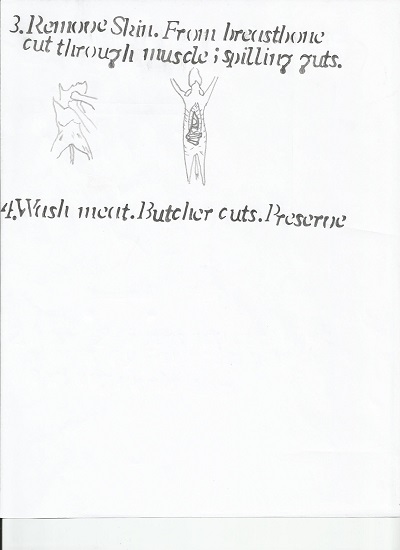 3. Remove Skin. From breastbone
cut through muscle; spilling guts.
4. Wash meat. Butcher cuts. Preserve